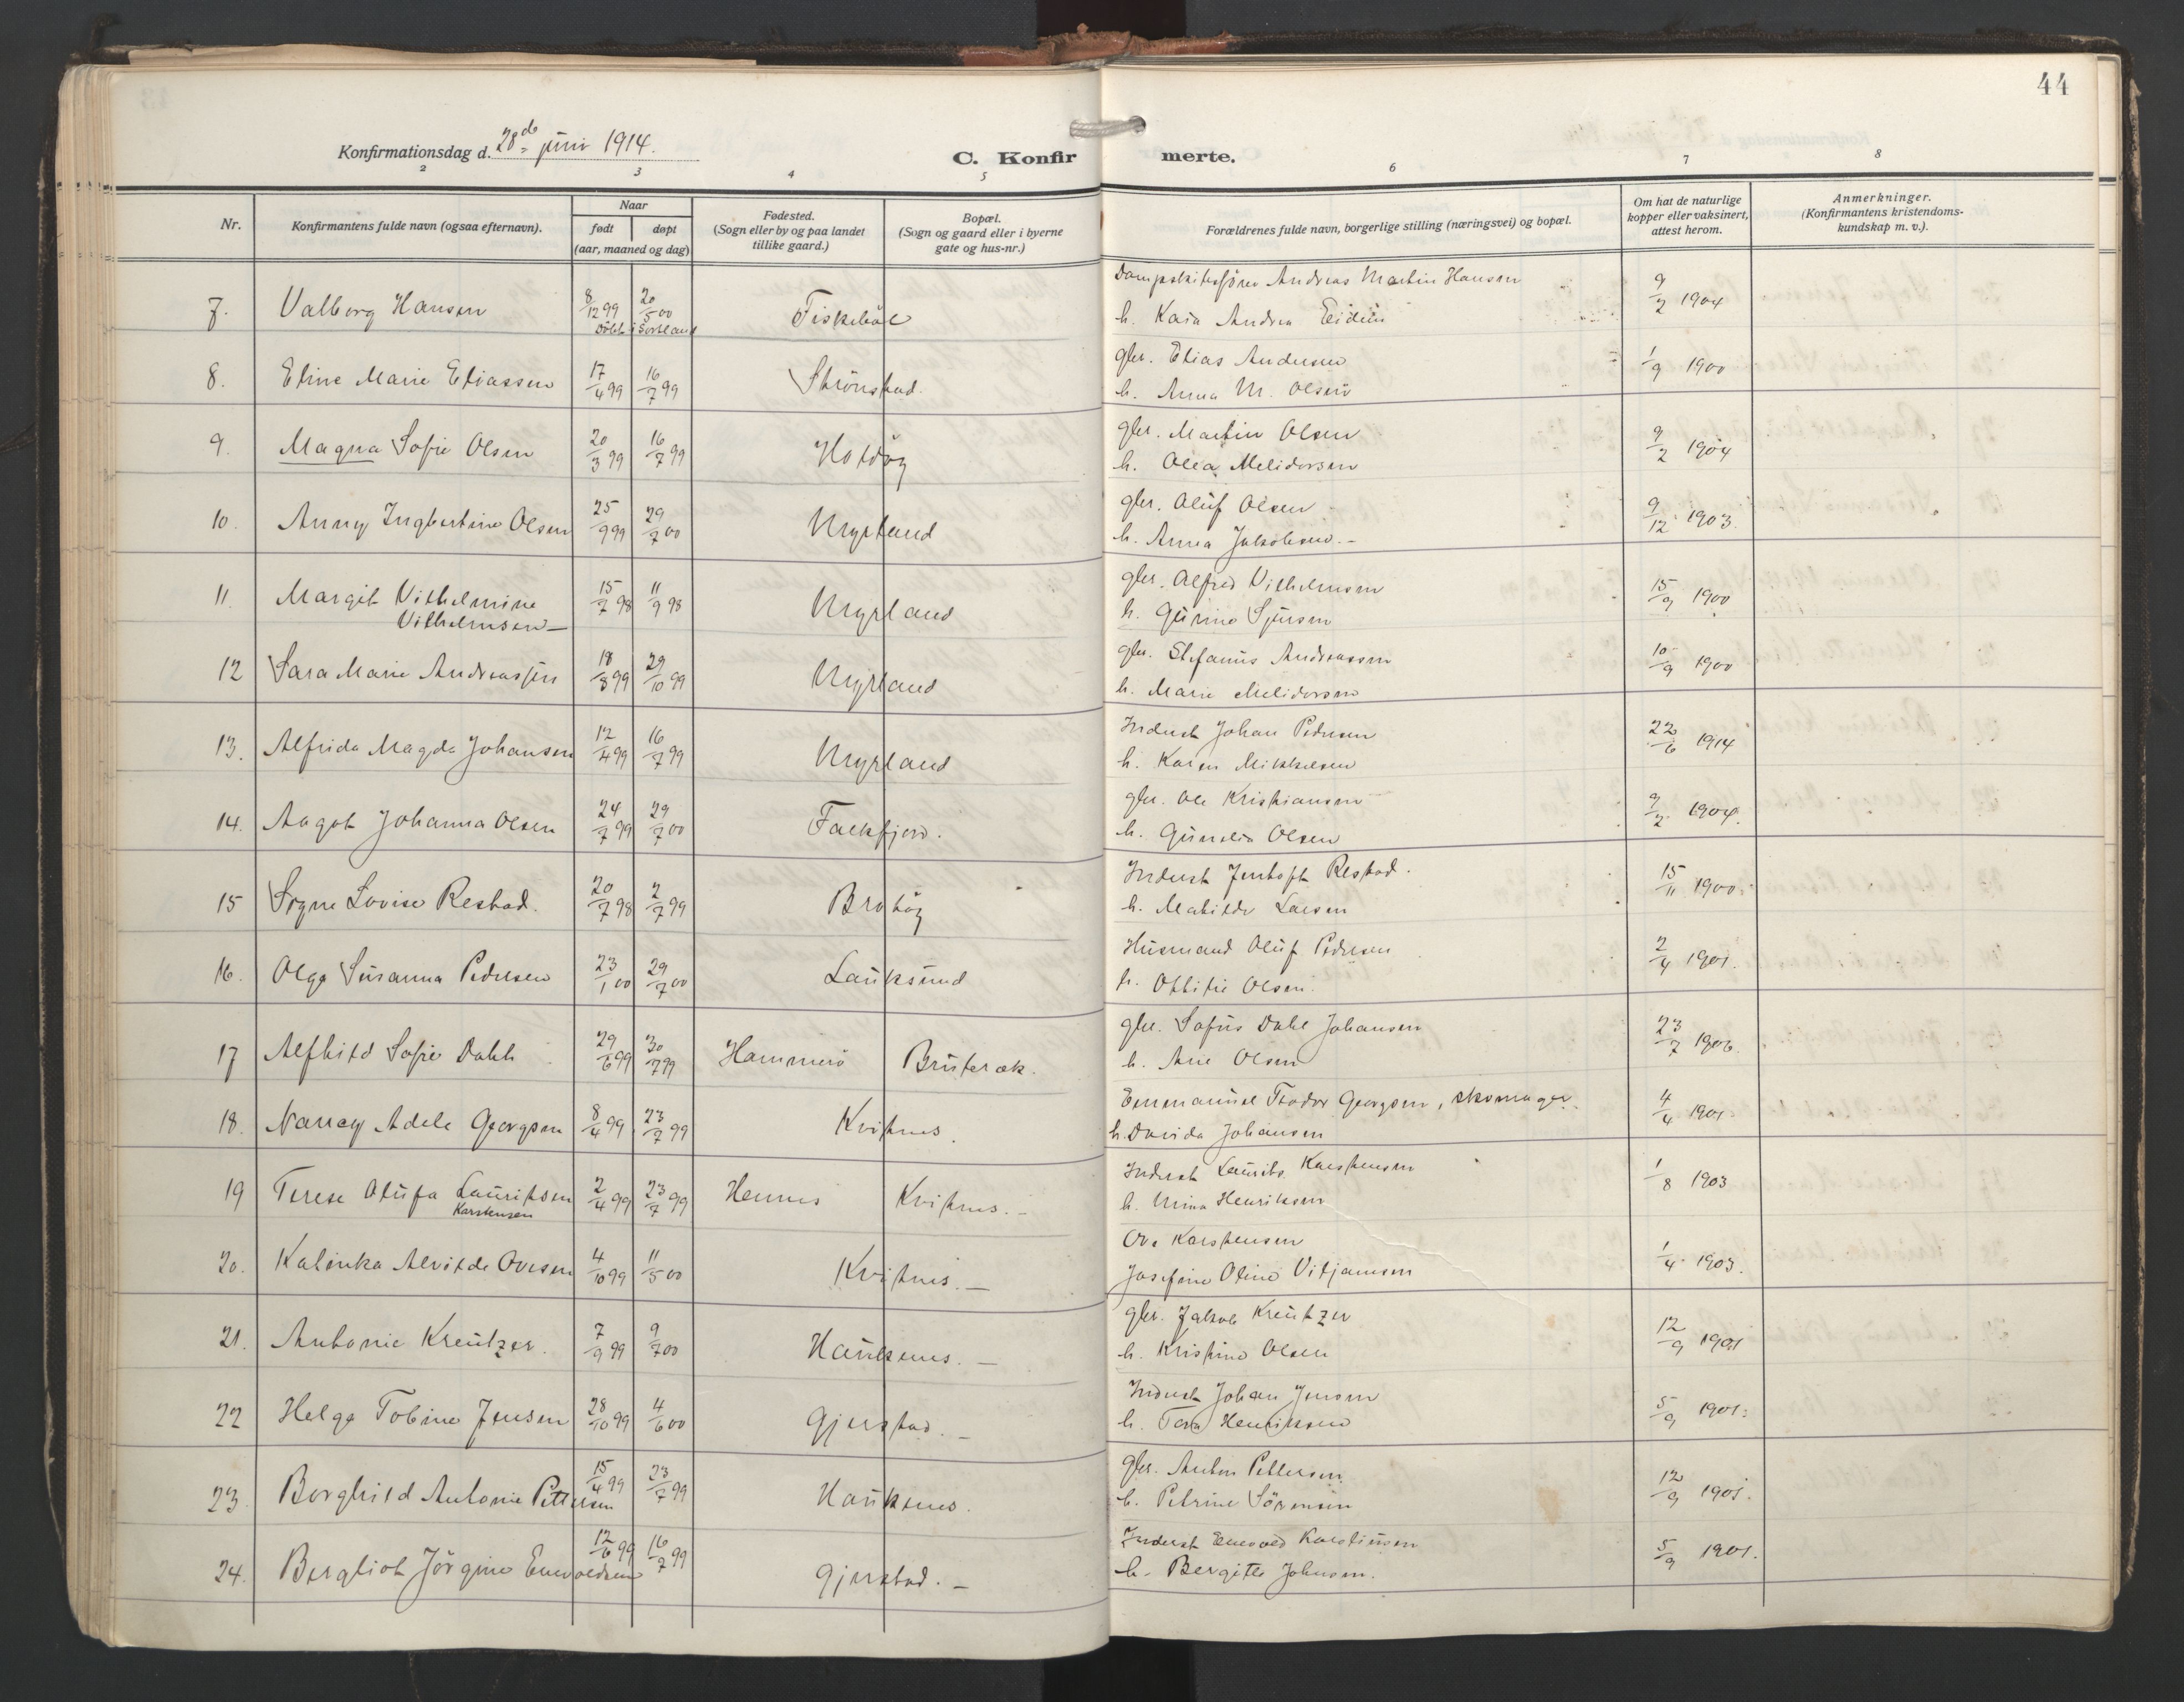 44
Konfirmationsdag d. 28de juni 1914.
C. Konfirmerte.
2 3 4 5 6 7 8
Nr.
Konfirmantens fulde navn (ogsaa efternavn).
Naar
født døpt
(aar, maaned og dag)
Fødested.
(Sogn eller by og paa landet
tillike gaard.)
Bopæl.
(Sogn og gaard eller i byerne
gate og hus-nr.)
Forældrenes fulde navn, borgerlige stilling (næringsvei) og bopæl.
Om hat de naturlige
kopper eller vaksinert,
attest herom.
Anmerkninger.
(Konfirmantens kristendoms-
kundskap m. v.).
7. Valborg Hansen 8/12 99 20/5 00 Fiskebøl Dampskibsfører Andreas Martin Hansen 9/2 1904
Døbt i Sortland h. Kaia Andrea
8. Eline Marie Eliassen 17/4 99 16/7 99 Strønstad. gbr. Elias Andersen 1/9 1900
h. Anna M. Olsen
9. Magna Sofie Olsen 20/3 99 16/7 99 Holdøy gbr. Martin Olsen 9/2 1904
h. Olea Melidorsen
10. Anny Ingbertine Olsen 25/9 99 29/7 00 Myrland gbr. Oluf Olsen 9/12 1903.
h. Anna Jakobsen. -
11. Margit Vilhelmine 15/7 98 11/9 98 Myrland gbr. Alfred Vilhelmsen 15/9 1900
Vilhelmsen h. Gurine Sjursen
12 Sara Marie Andreassen 18/8 99 29/10 99 Myrland gbr. Stefanus Andreassen 10/9 1900
h. Marie Melidorsen
13. Alfrida Magda Johansen 12/4 99 16/7 99 Myrland Inderst Johan Pedersen 22/6 1914
h. Karen Mikkelsen
14. Aagot Johanna Olsen 24/7 99 29/7 00 Falkfjord. gbr. Ole Kristiansen 9/2 1904.
h. Gunelia Olsen
15 Signe Lovise Restad. 20/7 98 2/7 99 Brotøy Inderst Jentoft Restad. 15/11 1900.
h. Matilde Larsen
16. Olga Susanna Pedersen 23/1 00 29/7 00 Lauksund Husmand Oluf Pedersen 2/4 1901.
h. Ottilie Olsen.
17 Alfhild Sofie Dahl 29/6 99 30/7 99 Hammerø Bruteræk. gbr. Sofus Dahl Johansen 23/7 1906.
h. Ane Olsen
18. Nancy Adele Georgsen 8/4 99 23/7 99 Kvitnes. Emmanuel Teodor Georgsen, skomager. 4/4 1901.
h. Davida Johansen
19 Terese Olufa Lauritsen 2/4 99 23/7 99 Hennes Kvitnes. - Inderst Laurits Karstensen 1/8 1903
Karstensen h. Mina Henriksen
20. Kalinka Alvilde Ovesen 4/10 99 11/5 00 Kvitnes. - Ove Karstensen 1/4 1903.
Josefine Oline Viljamsen
21. Antonie Kreutzer. 7/9 99 9/7 00 Hauknes. - gbr. Jakob Kreutzer 12/9 1901
h. Kristine Olsen
22 Helga Tobine Jensen 28/10 99 4/6 00 Gjerstad. - Inderst Johan Jensen 5/9 1901.
h. Tora Henriksen
23. Borghild Antonie Pettersen 15/4 99 23/7 99 Hauknes. gbr. Anton Pettersen 12/9 1901.
h. Petrine Sørensen
24. Bergliot Jørgine Enevoldsen 12/6 99 16/7 99 Gjerstad. - Inderst Enevold Karstensen 5/9 1901.
h. Bergitte Johnsen.